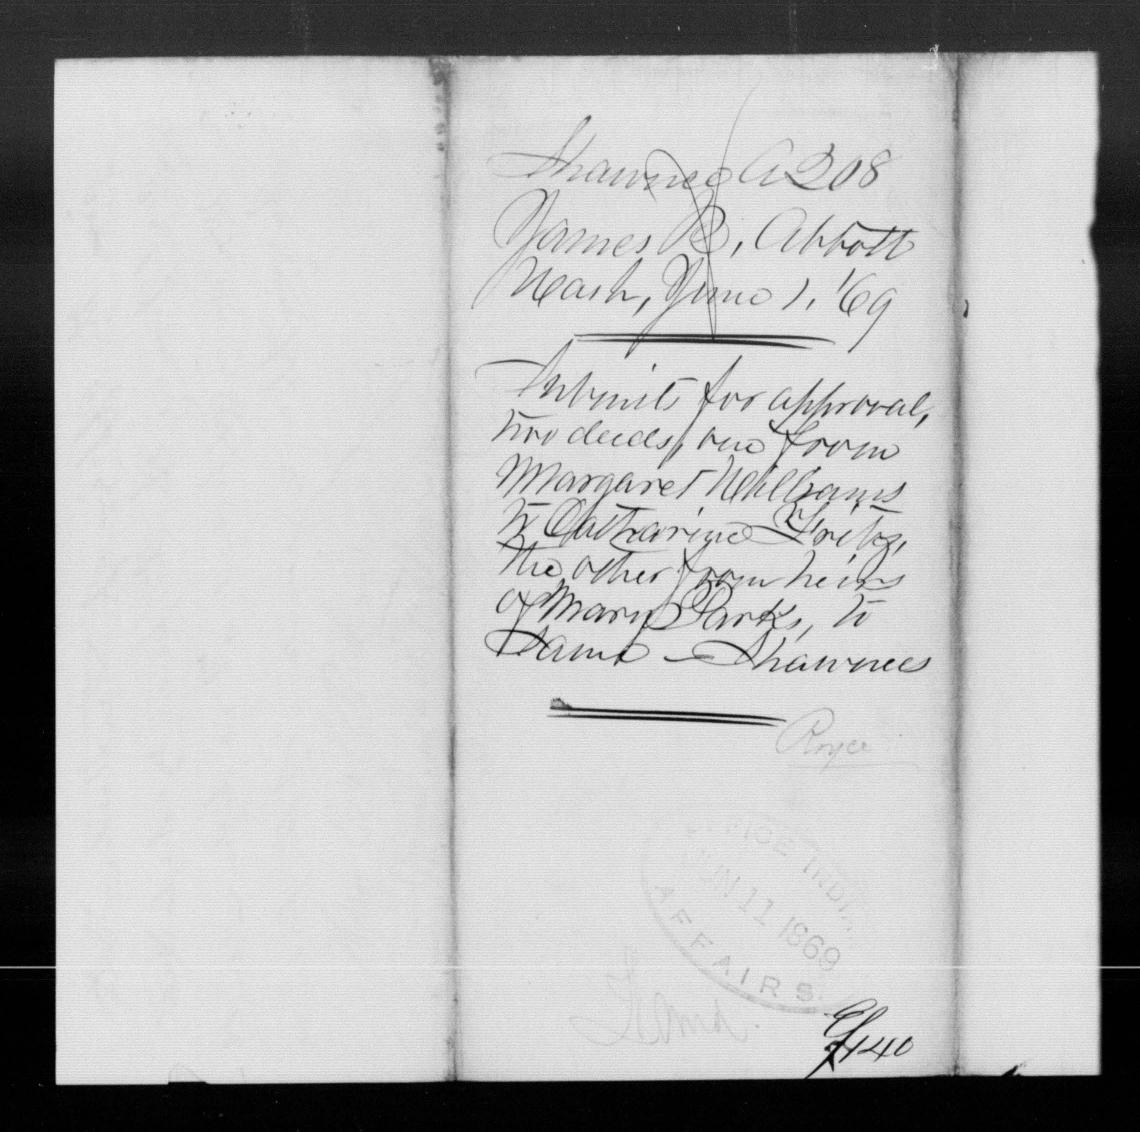 Shawnee A 208
James B. Abbott
Wash, June 1, '69
Submits for approval,
two deeds, one from
Margaret Williams
to Catharine Fritz,
the other from heirs
of Mary Parks, to
Same – Shawnees
Royce
OFFICE INDIAN
JUN 11 1869
AFFAIRS.
Land.
140